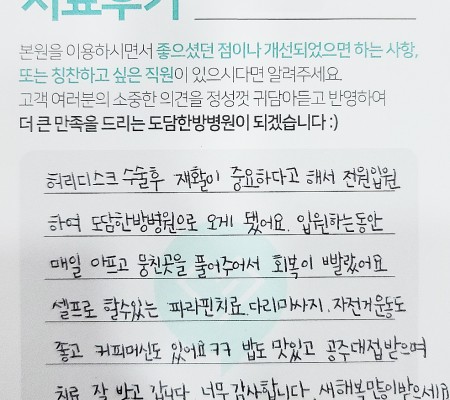 치료후기
본원을 이용하시면서 좋으셨던 점이나 개선되었으면 하는 사항,
또는 칭찬하고 싶은 직원이 있으시다면 알려주세요.
고객 여러분의 소중한 의견을 정성껏 귀담아듣고 반영하여
더 큰 만족을 드리는 도담한방병원이 되겠습니다 :)
허리디스크 수술후 재활이 중요하다고 해서 전원입원
하여 도담한방병원으로 오게 됐어요. 입원하는동안
매일 아프고 뭉친곳을 풀어주어서 회복이 빨랐어요
셀프로 할수있는 파라핀치료.다리마사지.자전거운동도
좋고 커피머신도 있어요ㅋㅋ 밥도 맛있고 공주대접받으며
치료 잘 받고 갑니다. 너무감사합니다. 새해복많이받으세요